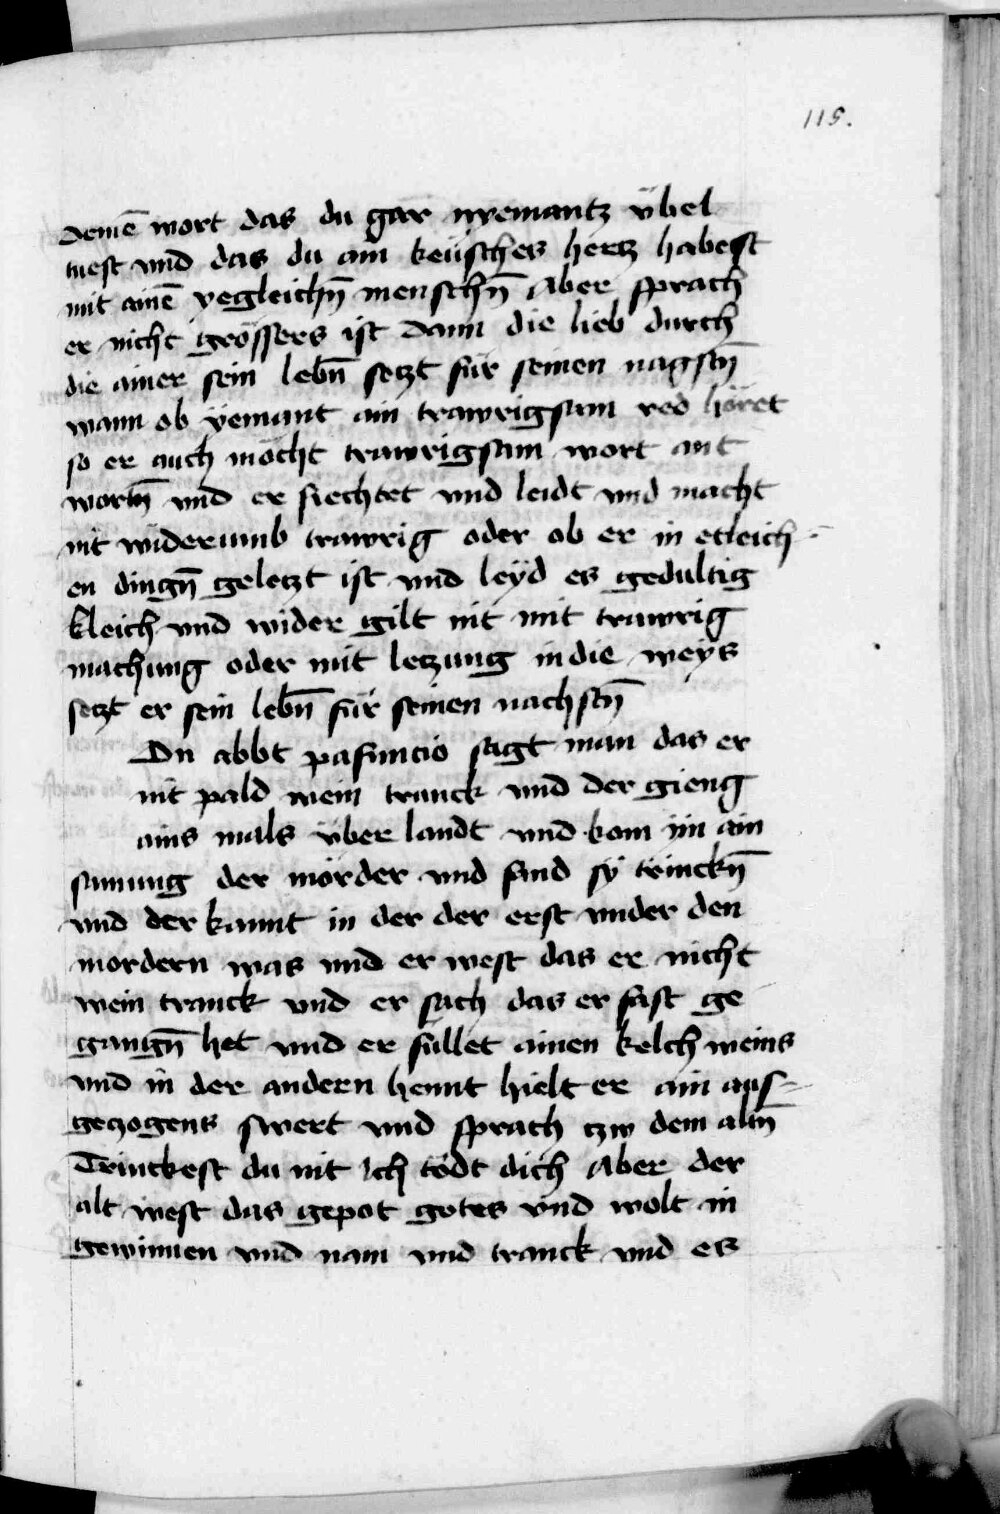 115.
deinē wort das du gar nyemantz übel
tuest vnd das du ain keüsches hertz habest
mit ainē yegleichn̄ menschn̄ Aber sprach
er nicht grössers ist dann die lieb durch
die ainer sein lebn̄ setzt für seinen nagstn̄
wann ob yemant ain trawrigsam red höret
so er auch möcht trawrigsam wort ant
wortn̄ vnd er fiechtet vnd leidt vnd macht
nit widerumb trawrig oder ob er in etleich-
en dingn̄ geletzt ist vnd leyd es gedultig
kleich vnd wider gilt nit mit trawrig
machung oder mit letzung in die weys
setzt er sein lebn̄ für seinen nachstn̄
Dn abbt pafuncio sagt man das er
nit pald wein tranck vnd der gieng
ains mals über landt vnd kom yn ain
samung der mörder vnd fand sy trinckn̄
vnd der kannt in der der erst vnder den
mordern was vnd er west das er nicht
wein tranck vnd er sach das er fast ge
gangn̄ het vnd er füllet ainen kelch weins
vnd in der andern hennt hielt er ain aus-
geczogens swert vnd sprach tzw dem altn̄
Trinckest du nit Ich tödt dich Aber der
alt west das gepot gotes vnd wolt in
gewinnen vnd nam vnd tranck vnd es